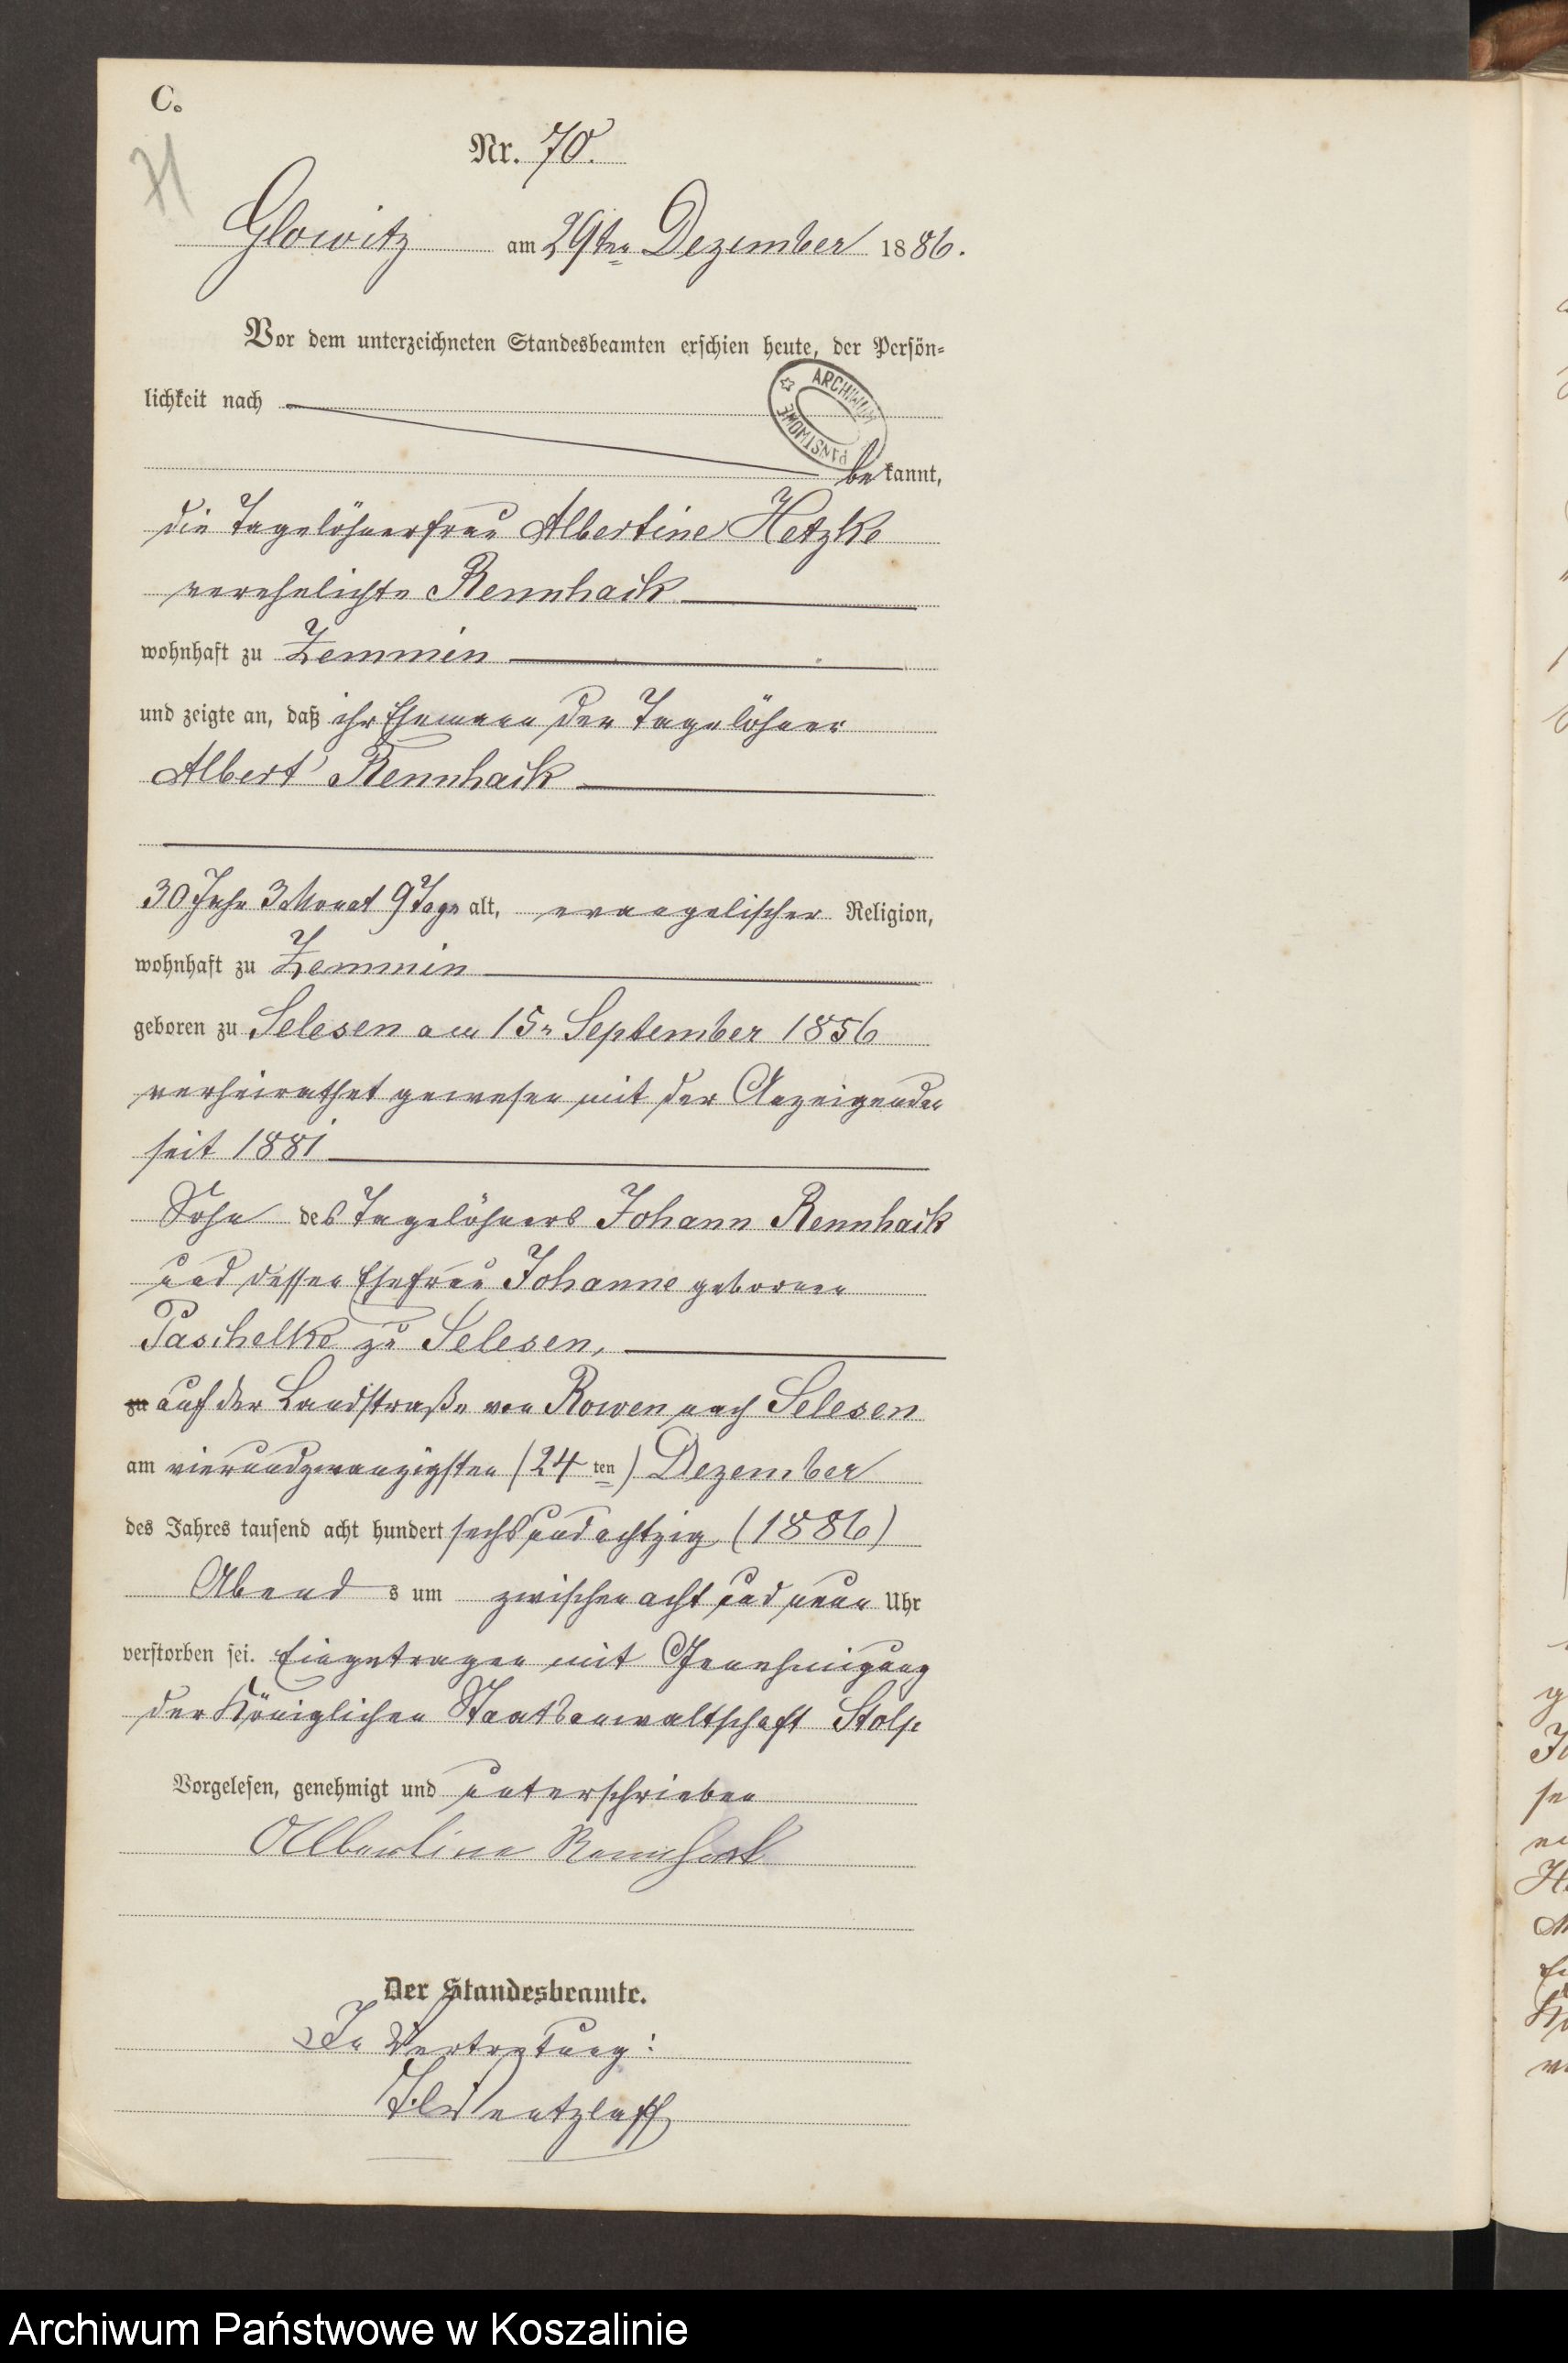 C.
71
Nr. 70.
Glowitz am 29ten Dezember 1886.
Vor dem unterzeichneten Standesbeamten erschien heute, der Persön-
lichkeit nach
ARCHIWUM PAŃSTWOWE
bekannt,
die Tagelöhnerfrau Albertine Hetzke
verehelichte Rennhack
wohnhaft zu Zemmin
und zeigte an, daß ihr Ehemann der Tagelöhner
Albert Rennhack
30 Jahr 3 Monat 9 Tage alt, evangelischer Religion,
wohnhaft zu Zemmin
geboren zu Selesen am 15n September 1856
verheirathet gewesen mit der Anzeigenden
seit 1881
Sohn des Tagelöhners Johann Rennhack
und dessen Ehefrau Johanne geboren
Paschelke zu Selesen,
zu auf der Landstraße von Rowen nach Selesen
am vierundzwanzigsten (24ten) Dezember
des Jahres tausend acht hundert sechsundachtzig (1886)
Abends um zwischen acht und neun Uhr
verstorben sei. Eingetragen mit Genehmigung
der Königlichen Staatsanwaltschaft Stolp
Vorgelesen, genehmigt und unterschrieben
Albertine Rennhack
Der Standesbeamte.
In Vertretung:
Wentzlaff
Archiwum Państwowe w Koszalinie